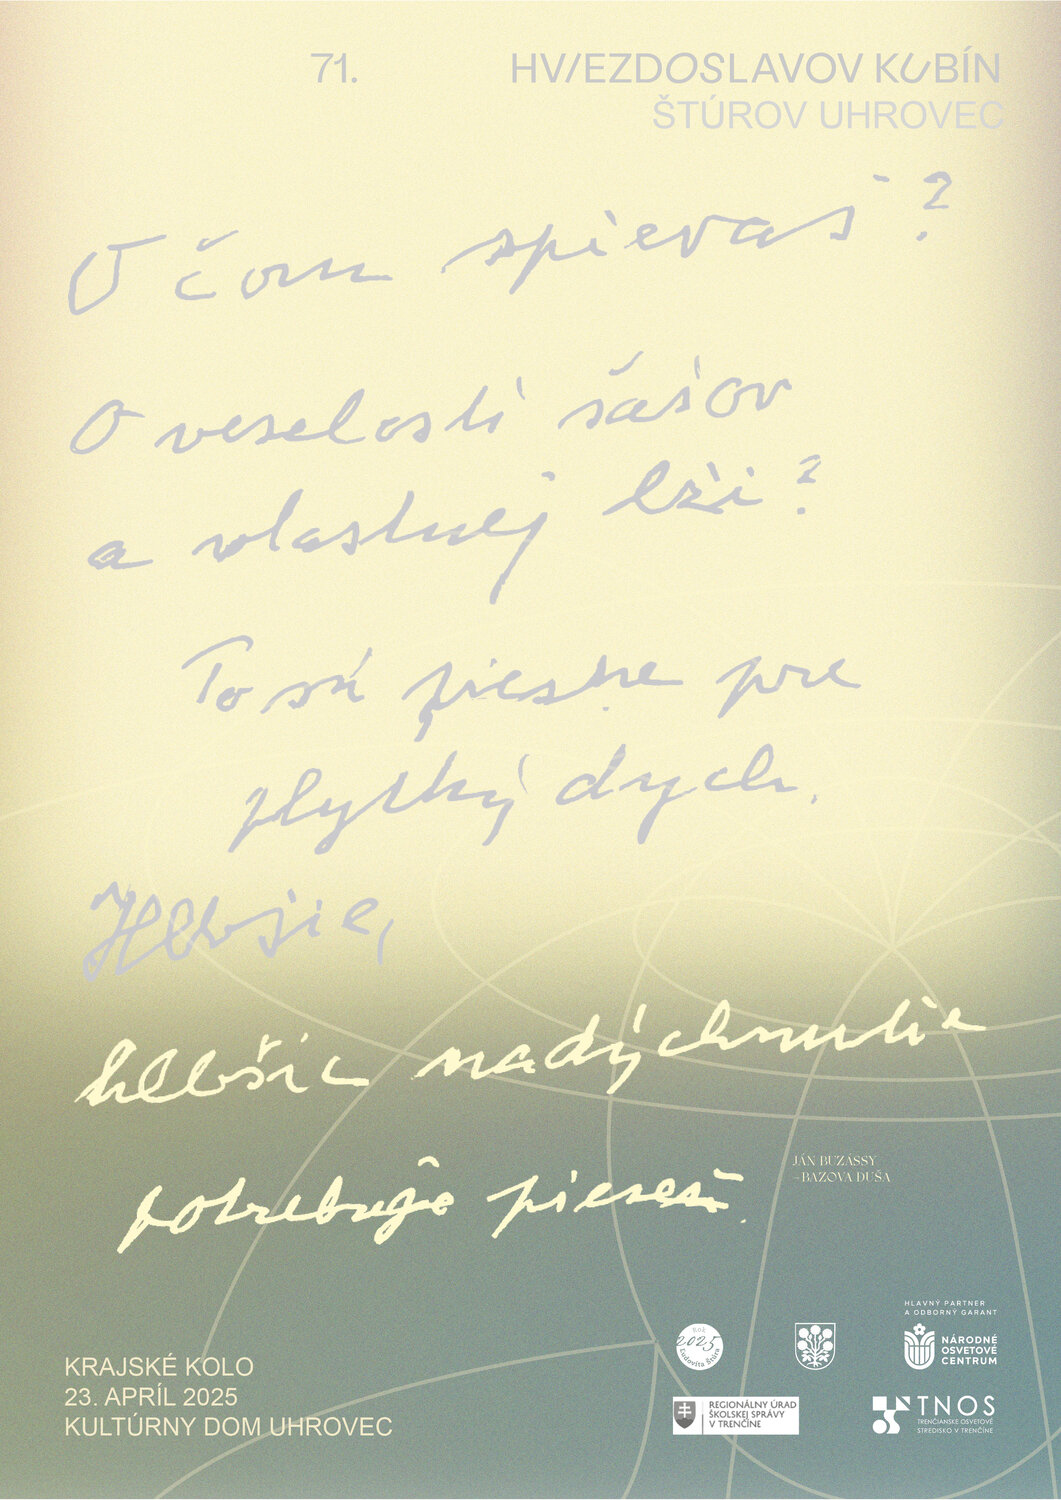 71. HVIEZDOSLAVOV KUBÍN
ŠTÚROV UHROVEC
O čom spievaš?
O veselosti šašov
a vlastnej lži?
To sú piesne pre
plytký dych.
Hlbšie,
hlbšie nadýchnutie
potrebuje pieseň.
JÁN BUZÁSSY
–BAZOVA DUŠA
HLAVNÝ PARTNER
A ODBORNÝ GARANT
Rok
2025
Ľudovíta Štúra
NÁRODNÉ
OSVETOVÉ
CENTRUM
KRAJSKÉ KOLO
23. APRÍL 2025
KULTÚRNY DOM UHROVEC
REGIONÁLNY ÚRAD
ŠKOLSKEJ SPRÁVY
V TRENČÍNE
TNOS
TRENČIANSKE OSVETOVÉ
STREDISKO V TRENČÍNE